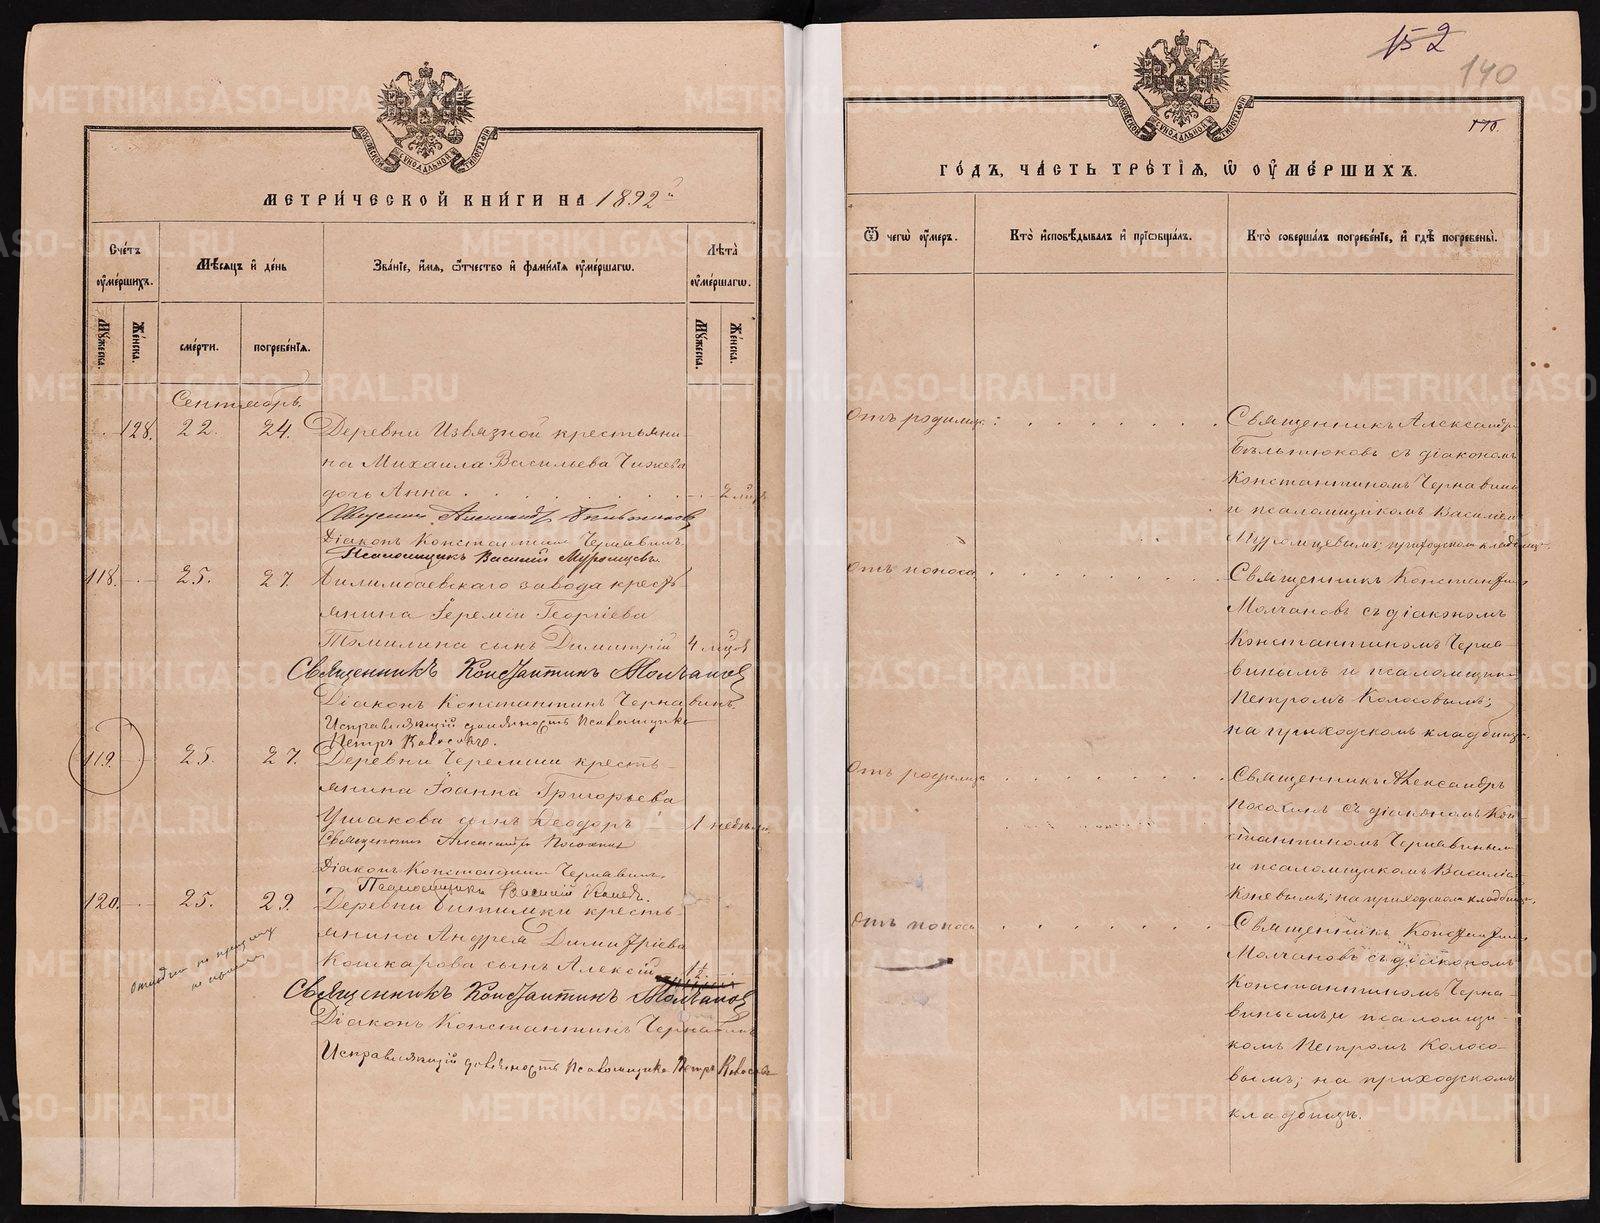 МЕТРИ́ЧЕСКОЙ КНИ́ГИ НА 1892 й
Сче́тъ ᲂу҆ме́ршихъ.
Мѣ́сяцъ и҆ де́нь
Зва́нїе, и҆́мя, ѻ҆́тчество и҆ фами́лїя ᲂу҆ме́ршагѡ.
Лѣ́та ᲂу҆ме́ршагѡ.
Мꙋ́жеска.
Же́нска.
сме́рти.
погребе́нїѧ.
Мꙋ́жеска.
Же́нска.
Сентябрь.
128. 22. 24. Деревни Извязной крестьяни-
на Михаила Васильева Чижева
дочь Анна
Священникъ Александръ Бѣльтюковъ
Діаконъ Константинъ Чернавинъ
Псаломщикъ Василій Муромцевъ.
118. 25. 27. Билимбаевскаго завода кресть
янина Іереміи Георгіева
Томилина сынъ Димитрій 4 мѣсяцевъ
Священникъ Константинъ Молчановъ
Діаконъ Константинъ Чернавинъ.
Исправляющій должность Псаломщика
Петръ Колосовъ.
119. 25. 27. Деревни Черемши кресть-
янина Іоанна Григорьева
Ушакова сынъ Ѳеодоръ 1 недѣли
Священникъ Александръ Посохинъ
Діаконъ Константинъ Чернавинъ.
Псаломщикъ Василій Коневъ.
120. 25. 29. Деревни Битимки кресть-
янина Андрея Димитріева
Кошкарова сынъ Алексій 1½
Священникъ Константинъ Молчановъ
Діаконъ Константинъ Чернавинъ
Исправляющій должность Псаломщика Петръ Колосовъ
152
140
ГО́ДЪ, ЧА́СТЬ ТРЕ́ТЇЯ, Ѡ҆ ОУ҆МЕ́РШИХЪ.
Ѿ чегѡ̀ ᲂу҆́меръ.
Кто̀ и҆сповѣ́дывалъ и҆ прїѡбща́лъ.
Кто̀ соверша́лъ погребе́нїе, и҆ гдѣ̀ погребены̀.
Отъ родимца
Священникъ Александръ
Бѣльтюковъ съ діакономъ
Константиномъ Чернавинымъ
и псаломщикомъ Василіемъ
Муромцевымъ; приходскомъ кладбищѣ.
Отъ поноса
Священникъ Константинъ
Молчановъ съ діакономъ
Константиномъ Черна-
винымъ и псаломщикомъ
Петромъ Колосовымъ;
на приходскомъ кладбищѣ.
Отъ родимца
Священникъ Александръ
Посохинъ съ діакономъ Кон-
стантиномъ Чернавинымъ
и псаломщикомъ Василіемъ
Коневымъ; на приходскомъ кладбищѣ.
Отъ поноса
Священникъ Константинъ
Молчановъ съ діакономъ
Константиномъ Черна-
винымъ, и псаломщи-
комъ Петромъ Колосо-
вымъ; на приходскомъ
кладбищѣ.
METRIKI.GASO-URAL.RU